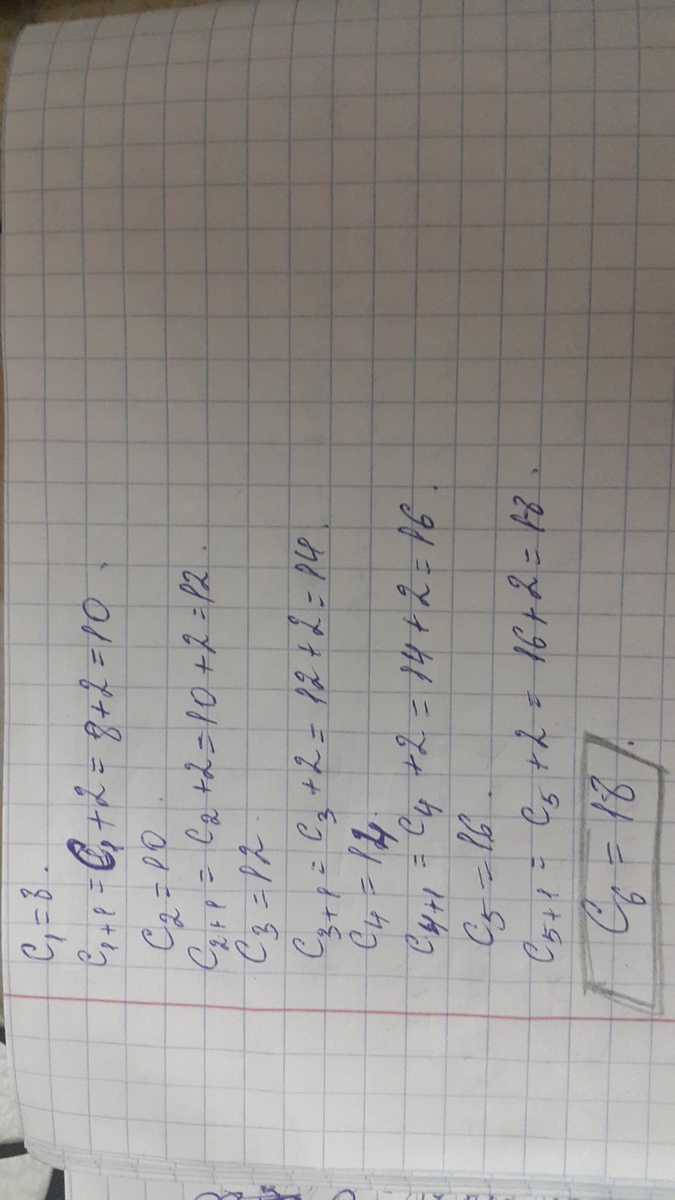 C₁=8.
C₁₊₁=C₁+2=8+2=10.
C₂=10.
C₂₊₁=C₂+2=10+2=12.
C₃=12.
C₃₊₁=C₃+2=12+2=14.
C₄=14.
C₄₊₁=C₄+2=14+2=16.
C₅=16.
C₅₊₁=C₅+2=16+2=18.
C₆=18.